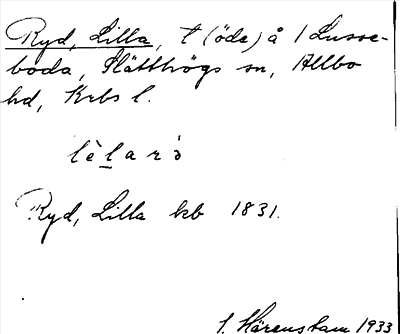 Ryd, Lilla, t (öde) å 1 Lusse-
boda, Slätthögs sn, Allbo
hd, Krbs l.
lèlarò
Ryd, Lilla kb 1831.
S. Härenstam 1933